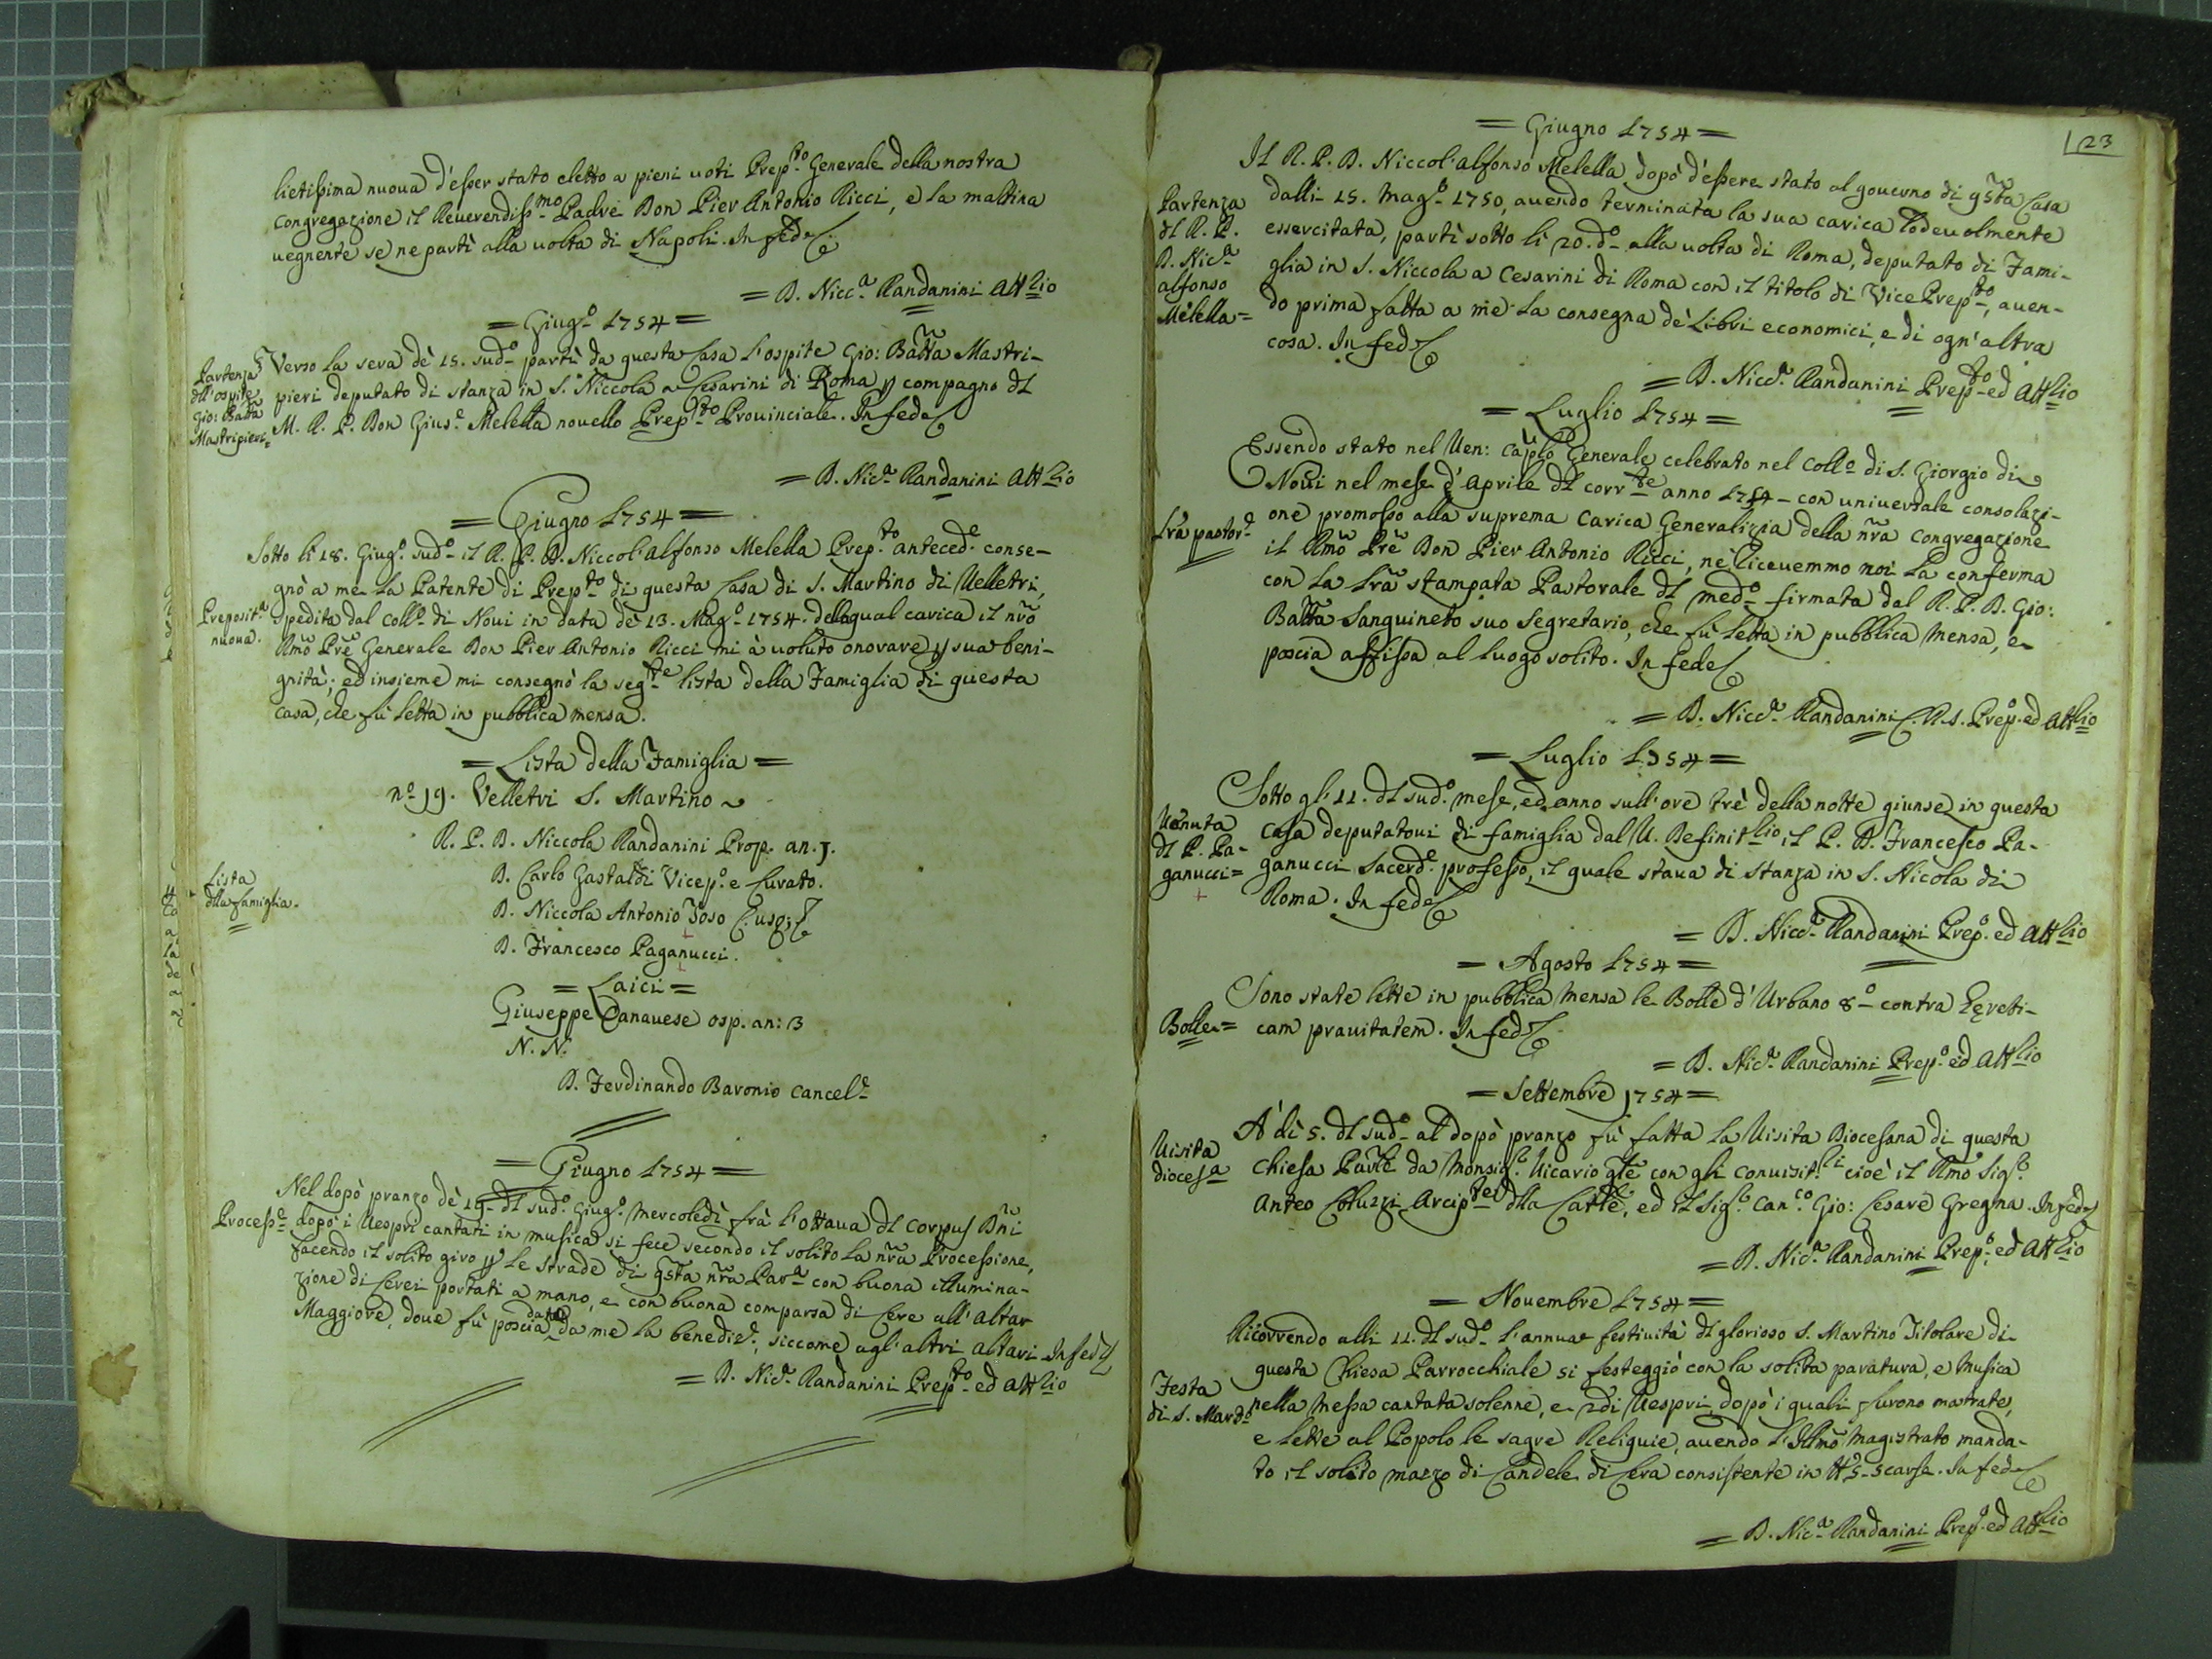 lietissima nuova d'esser stato eletto a pieni uoti Prep.to Generale della nostra
congregazione il Reverendiss.mo Padre Don Pier Antonio Ricci, e la mattina
uegnente se ne partì alla uolta di Napoli. In fede
= D. Nicc.a Randanini Att.lio
= Giug.o 1754 =
Partenza dll'ospite Gio: Batta Mastripieri=
Verso la sera de' 15. sud.o partì da questa Casa l'ospite Gio: Batta Mastri-
pieri deputato di stanza in S. Niccola a Cesarini di Roma p compagno dl
M. R. P. Don Gius.e Melella nouello Prep.to Prouinciale. In fede
= D. Nic.a Randanini Att.lio
= Giugno 1754 =
Preposit.a nuoua.
Sotto li 18. Giug.o sud.o il R. P. D. Niccol'alfonso Melella Prep.to anteced.e conse-
gnò a me la Patente di Prep.to di questa Casa di S. Martino di Uelletri,
spedita dal Coll.o di Noui in data de' 13. Mag.o 1754. della qual carica il nro
Rmo Pre Generale Don Pier Antonio Ricci mi à uoluto onorare p sua beni-
gnità; ed insieme mi consegnò la seg.te lista della Famiglia di questa
casa, che fù letta in pubblica mensa.
= Lista della Famiglia =
Lista dlla famiglia.
n.o 19. Velletri S. Martino
R. P. D. Niccola Randanini Prop. an. 1.
D. Carlo Gastaldi Vicep.o e Curato.
D. Niccola Antonio Toso
D. Francesco Paganucci.
= Laici =
Giuseppe Canauese osp. an: 3
N. N.
D. Ferdinando Baronio Cancel.e
= Giugno 1754 =
Process.e
Nel dopò pranzo de' 19. dl sud.o Giug.o Mercoledì frà l'ottaua dl Corpus Dni
dopò i Uespri cantati in musica si fece secondo il solito la nra Processione,
facendo il solito giro p le strade di qsta nra Par.a con buona illumina-
zione di Cerei portati a mano, e con buona comparsa di Cere all'altar
Maggiore, doue fù poscia data da me la benediz.e, siccome agl'altri altari. In fede
= D. Nic.a Randanini Prep.to ed Att.lio
23
= Giugno 1754 =
Partenza dl R. P. D. Nic.a alfonso Melella=
Il R. P. D. Niccol'alfonso Melella dopò d'essere stato al gouerno di qsta Casa
dalli 15. Mag.o 1750, auendo terminata la sua carica lodeuolmente
essercitata, partì sotto li 20. d.o alla uolta di Roma, deputato di Fami-
glia in S. Niccola a Cesarini di Roma con il titolo di Vice Prep.to, auen-
do prima fatta a me la consegna de' Libri economici, e di ogn'altra
cosa. In fede
= D. Nicc.a Randanini Prep.to ed Att.lio
= Luglio 1754 =
Lra pastor.e
Essendo stato nel Uen: Caplo Generale celebrato nel Coll.o di S. Giorgio di
Noui nel mese d'Aprile dl corr.te anno 1754 - con uniuersale consolazi-
one promosso alla suprema Carica Generalizia della nra Congregazione
il Rmo Pre Don Pier Antonio Ricci, ne riceuemmo noi la conferma
con la lra stampata Pastorale dl med.o firmata dal R. P. D. Gio:
Batta Sanguineto suo Segretario, che fù letta in pubblica Mensa, e
poscia affissa al luogo solito. In fede
= D. Nicc.a Randanini C. R. S. Prep.o ed Att.lio
= Luglio 1754 =
Uenuta dl P. Paganucci=
Sotto gl'11. dl sud.o mese, ed anno sull'ore trè della notte giunse in questa
casa deputatoui di famiglia dal U. Definit.lio il P. D. Francesco Pa-
ganucci Sacerd.e professo, il quale staua di stanza in S. Nicola di
Roma. In fede
= D. Nicc.a Randanini Prep.o ed Att.lio
= Agosto 1754 =
Bolle=
Sono state lette in pubblica Mensa le Bolle d'Urbano 8.o contra hęreti-
cam prauitatem. In fede
= D. Nic.a Randanini Prep.o ed Att.lio
= Settembre 1754 =
Uisita dioces.a
A dì 5. dl sud.o al dopò pranzo fù fatta la Uisita Diocesana di questa
Chiesa Parle da Monsig.r Uicario Gle con gli Conuisit.li cioè il Rmo Sig.r
Anteo Coluzzi Arcip.te dlla Catle, ed il Sig.r Can.co Gio: Cesare Gregna. In fede
= D. Nic.a Randanini Prep.o ed Att.lio
= Nouembre 1754 =
Festa di S. Mart.o
Ricorrendo alli 11. dl sud.o l'annua festiuità dl glorioso S. Martino Titolare di
questa Chiesa Parrocchiale si festeggiò con la solita paratura, e Musica
nella Messa cantata solenne, e 2di Uespri, dopò i quali furono mostrate,
e lette al Popolo le sagre Reliquie, auendo l'Illmo Magistrato manda-
to il solito mazzo di Candele di Cera consistente in tt 5 - scarse. In fede
= D. Nic.a Randanini Prep.o ed Att.lio